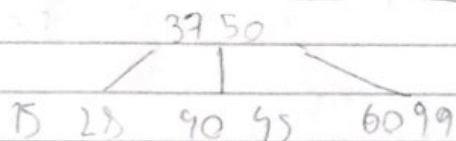 37 50
15 28 40 45 60 99